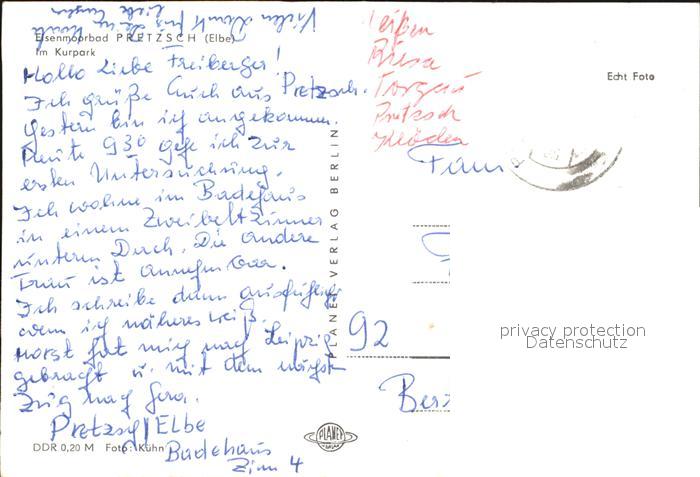 Vielen Dank
Eisenmoorbad PRETZSCH (Elbe)
Im Kurpark
Hallo Liebe Freiberger!
Ich grüße Euch aus Pretzsch.
Gestern bin ich angekommen.
Heute 9³⁰ gehe ich zur
ersten Untersuchung.
Ich wohne im Badehaus
in einem Zweibettzimmer
unterm Dach. Die andere
Frau ist annehmbar.
Ich schreibe dann ausführlich
wenn ich näheres weiß.
Horst hat mich nach Leipzig
gebracht u. mit dem nächst
Zug nach Gera.
Pretzsch/Elbe
Badehaus
Zim 4
DDR 0,20 M Foto: Kühn
PLANET VERLAG BERLIN
PLANET
Riesa
Torgau
Pretzsch
Klöden
Echt Foto
Fam
92
Ber
privacy protection
Datenschutz